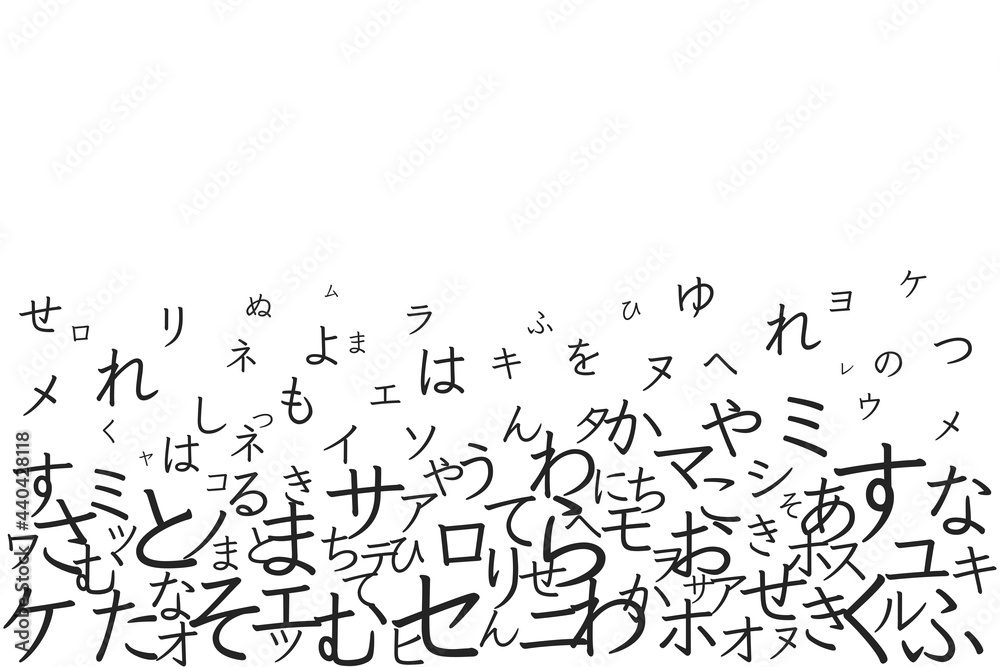 ケ
せ ロ リ ぬ ム ラ ふ ひ ゆ ヨ
れ ネ よ ま は キ を ヌ へ れ レ の つ
メ し っ も エ ん タ か や ミ ウ メ
く ャ は ネ イ ソ
す ミ コ る き サ や う わ に ち マ こ シ そ あ す な
さ ッ と ノ ま と ま ち テ ア ひ ロ て ら へ モ ヲ お き ホ ス ユ キ
む な て り せ か サ ア せ く ル
ケ た オ そ エ ッ む ヒ セ ん ニ わ ホ オ ヌ き ふ
Adobe Stock | #440428118
Adobe Stock